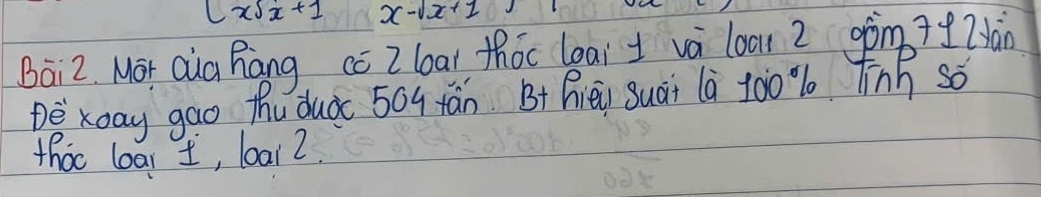 x√x+1 x-√x+1
Bài 2. Một cửa hàng có 2 loại thóc loại 1 và loại 2 gồm 712 tấn
Để xoay gạo thu được 504 tấn. Bt hiệu suất là 100%. Tính số
thóc loại 1, loại 2.